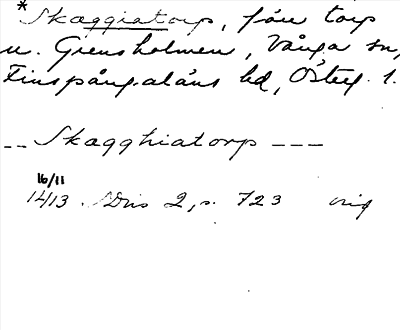 *Skæggiatorp, förr torp
u. Grensholmen, Vånga sn,
Finspångaläns hd, Österg. l.
-- Skægghiatorp ---
16/11
1413. SDns 2, s. 723 orig